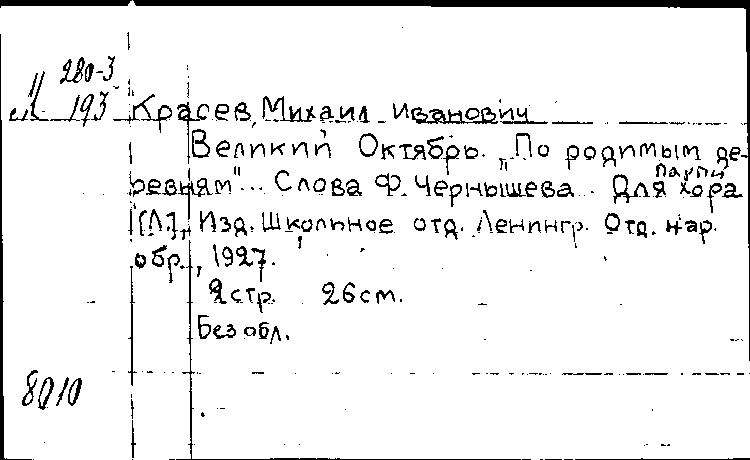 280-3
М 193
Красев, Михаил Иванович
Великий Октябрь. „По родимым де-
ревням"... Слова Ф. Чернышева. Для хора
[Л.], Изд. Школьное отд. Ленингр. Отд. нар.
обр., 1927.
2 стр. 26 см.
Без обл.
8010